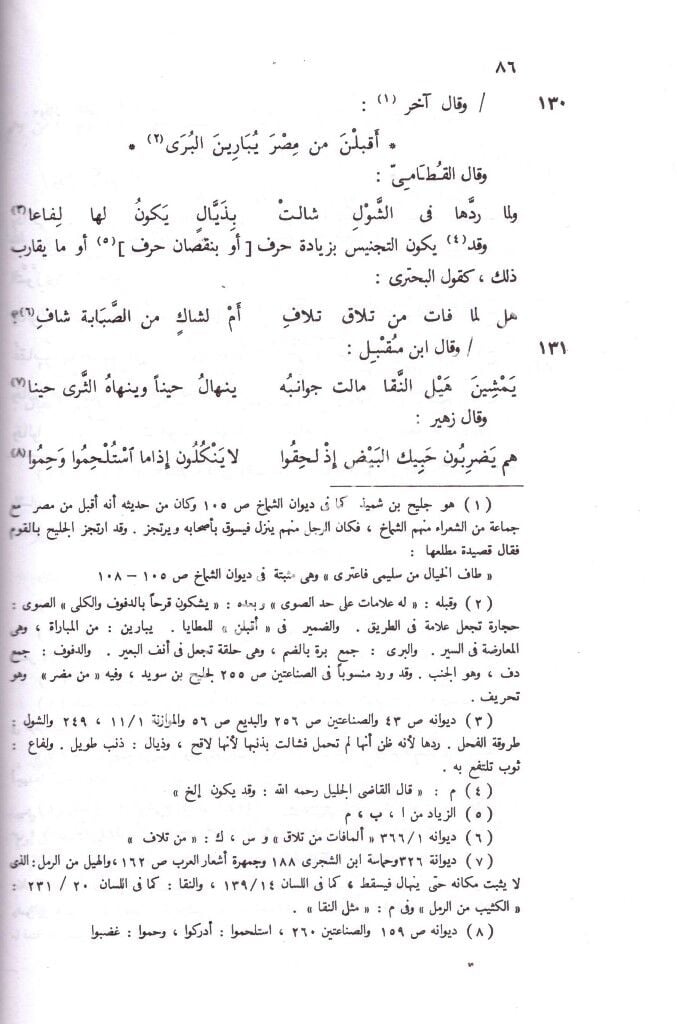 ٨٦
١٣٠ / وقال آخر (١) :
* أَقبلْنَ من مِصْرَ يُبَارِينَ البُرَى (٢) *
وقال القُطَامِىّ :
ولما ردَّها فى الشَّوْلِ شالتْ بِذَيَّالٍ يَكونُ لها لِفاعا (٣)
وقد (٤) يكون التجنيس بزيادة حرف [ أو بنقصان حرف ] (٥) أو ما يقارب
ذلك ، كقول البحترى :
هل لما فات من تلاق تلافِ أمْ لشاكٍ من الصَّبابة شافِ (٦)؟
١٣١ / وقال ابن مُقْبِل :
يَمْشِينَ هَيْل النَّقا مالت جوانبُه ينهالُ حيناً وينهاهُ الثَّرى حينا (٧)
وقال زهير :
هم يَضرِبُون حَبِيك البَيْض إذْ لحِقُوا لا يَنْكُلُون إذاما ٱسْتُلْحِمُوا وَحِمُوا (٨)
(١) هو جليح بن شميذ كما فى ديوان الشماخ ص ١٠٥ وكان من حديثه أنه أقبل من مصر مع
جماعة من الشعراء منهم الشماخ ، فكان الرجل منهم ينزل فيسوق بأصحابه ويرتجز . وقد ارتجز الجليح بالقوم
فقال قصيدة مطلعها :
« طاف الخيال من سليمى فاعترى » وهى مثبتة فى ديوان الشماخ ص ١٠٥ – ١٠٨
(٢) وقبله : « له علامات على حد الصوى » وبعده : « يشكون قرحاً بالدفوف والكلى » الصوى :
حجارة تجعل علامة فى الطريق . والضمير فى « أقبلن » للمطايا . يبارين : من المباراة ، وهى
المعارضة فى السير . والبرى : جمع برة بالضم ، وهى حلقة تجعل فى أنف البعير . والدفوف : جمع
دف ، وهو الجنب . وقد ورد منسوباً فى الصناعتين ص ٢٥٥ لجليح بن سويد ، وفيه « من مصر » وهو
تحريف .
(٣) ديوانه ص ٤٣ والصناعتين ص ٢٥٦ والبديع ص ٥٦ والموازنة ١١/١ ، ٢٤٩ والشول :
طروقة الفحل . ردها لأنه ظن أنها لم تحمل فشالت بذنبها لأنها لاقح ، وذيال : ذنب طويل . ولفاع :
ثوب تلتفع به .
(٤) م : « قال القاضى الجليل رحمه الله : وقد يكون إلخ »
(٥) الزياد من ا ، ب ، م
(٦) ديوانه ٣٦٦/١ « ألمافات من تلاق » و س ، ك : « من تلاف »
(٧) ديوانة ٣٢٦ وحماسة ابن الشجرى ١٨٨ وجمهرة أشعار العرب ص ١٦٢، والهيل من الرمل : الذى
لا يثبت مكانه حتى ينهال فيسقط ، كما فى اللسان ١٣٩/١٤ ، والنقا : كما فى اللسان ٢٠ / ٢٣١ :
« الكثيب من الرمل » وفى م : « مثل النقا » .
(٨) ديوانه ص ١٥٩ والصناعتين ٢٦٠ ، استلحموا : أدركوا ، وحموا : غضبوا